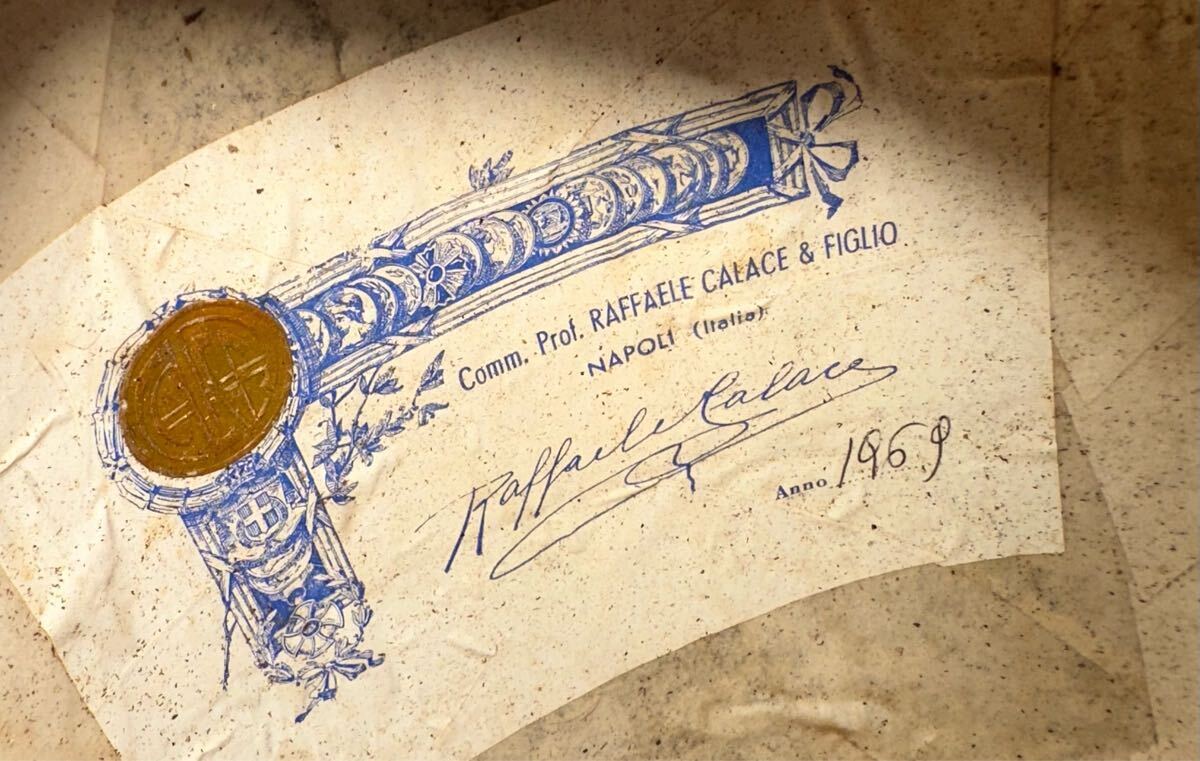 Comm. Prof. RAFFAELE CALACE & FIGLIO
NAPOLI (Italia)
Raffaele Calace
Anno 1969